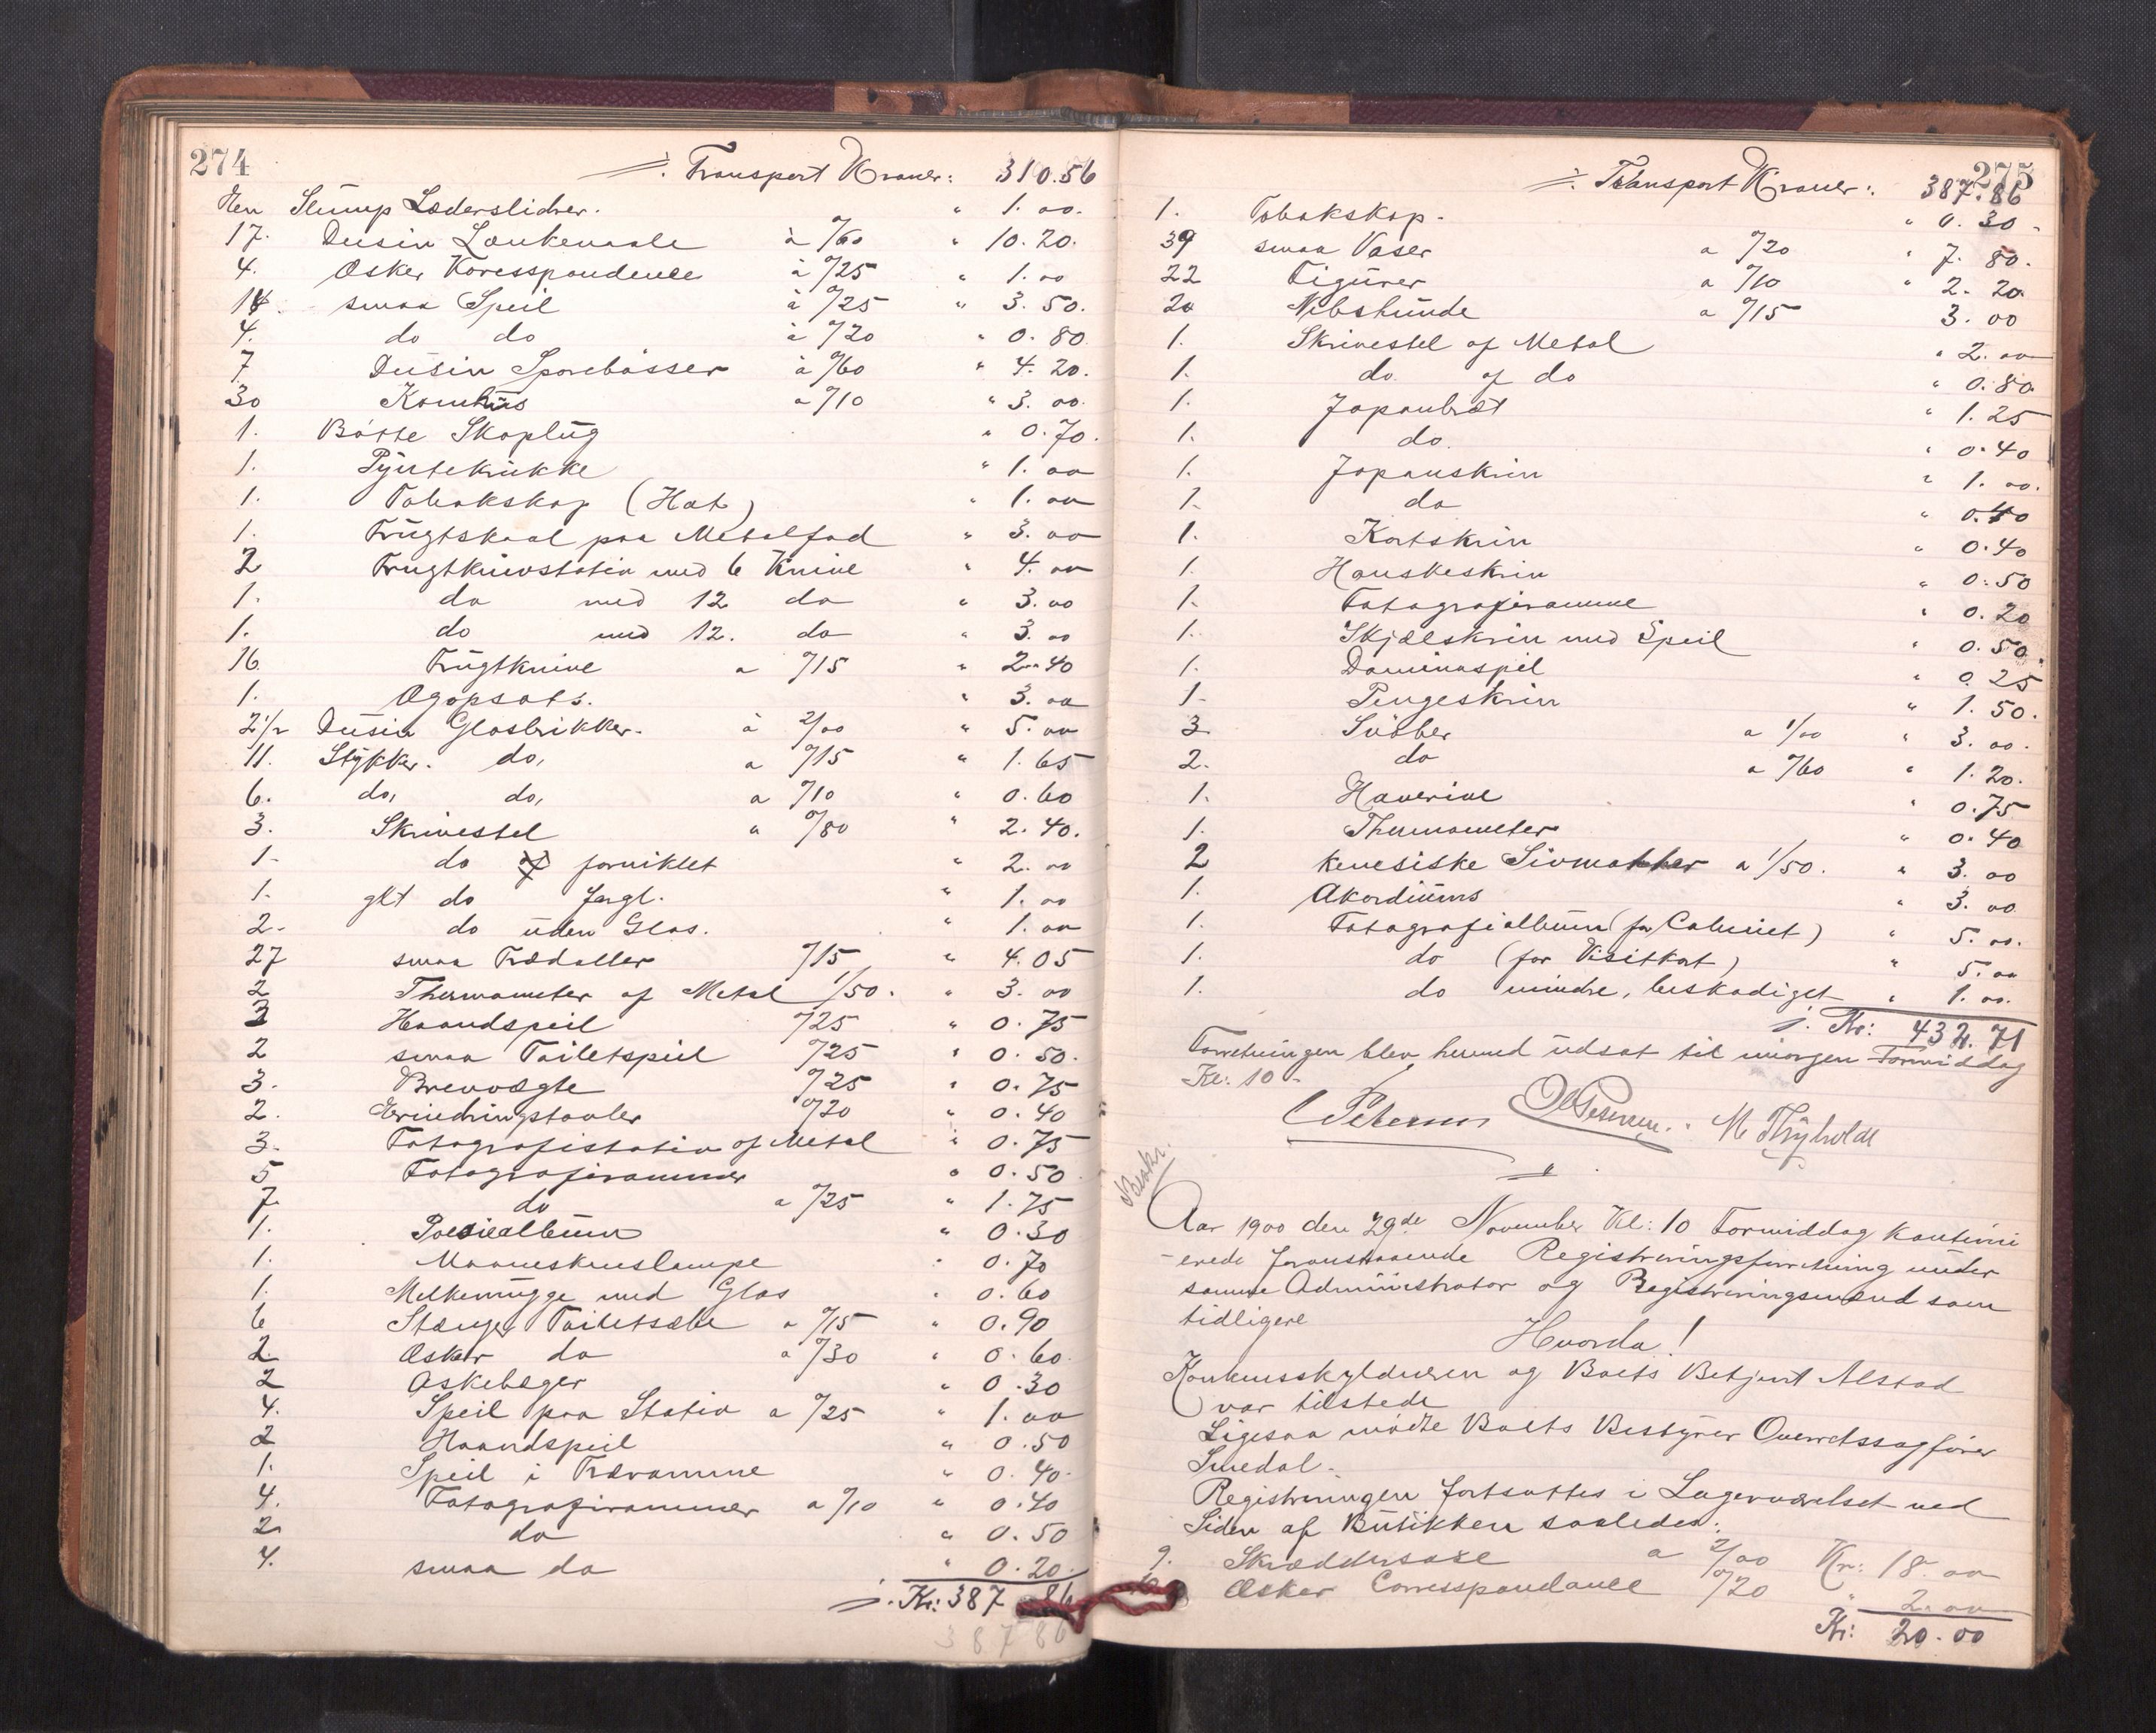 274
Transport Kroner: 310.56
Een Slump Læderslidser. " 1.00.
17. Dusin Lænkenaale à "/60 " 10.20.
4. Æsker Koresspondence à "/25 " 1.00
14. smaa Speil à "/25 " 3.50.
4. do do à "/20 " 0.80
7 Dusin Sparebøsser à "/60 " 4.20.
30 Komhus à "/10 " 3.00.
1. Bøtte Skoplüg " 0.70.
1. Pÿntekrükke " 1.00
1. Tobakskop (Hat) " 1.00
1. Frügtskaal paa Metalfad " 3.00
2 Frügtknivstativ med 6 Knive " 4.00
1. do med 12 do " 3.00
1. do med 12. do " 3.00
16 Frügtknive a "/15 " 2.40
1. Ogopsats. " 3.00
2 1/2 Düsin Glasbrikker. à 2/00 " 5.00
11. Stÿkker. do, a "/15 " 1.65
6. do, do, a "/10 " 0.60
3. Skrivestel a "/80 " 2.40.
1. do forniklet " 2.00
1. glt do forgl. " 1.00
2. do üden Glas. " 1.00
27 smaa Trædaller "/15 " 4.05
2 Thermometer af Metal 1/50. " 3.00
3 Haandspeil "/25 " 0.75
2 smaa Toiletspeil "/25 " 0.50.
3. Brevvægte "/25 " 0.75
2. Erindringstavler "/20 " 0.40
3. Fotografistativ af Metal " 0.75
5 Fotografirammer " 0.50
7. do a "/25 " 1.75
1. Poesiealbüm " 0.30
1. Maaneskinslampe " 0.70
1. Melkemügge med Glas " 0.60
6 Stænger Toiletsæbe a "/15 " 0.90
2. Æsker do a "/30 " 0.60.
2 Askebæger " 0.30
4. Speil paa Stativ a "/25 " 1.00
2 Haandspeil " 0.50
1. Speil i Træramme " 0.40.
4. Fotografirammer a "/10 " 0.40
2. do " 0.50
4. smaa do " 0.20.
Kr: 387 86
387 86
275
Transport Kroner: 387.86
1. Tobakskop. " 0.30.
39 smaa Vaser a "/20 " 7.80.
22 Figürer a "/10 " 2.20.
20 Mobshünde a "/15 3.00
1. Skrivestel af Metal " 2.00
1. do af do " 0.80.
1. Japanbræt " 1.25
1. do. " 0.40
1. Japanskrin " 1.00.
1. do " 0.40
1. Kortskrin " 0.40
1. Hanskeskrin " 0.50
1. Fotografiramme " 0.20
1. Skjælskrin med Speil " 0.50.
1. Dominospil " 0.25
1. Pengeskrin " 1.50.
3. Svøber a 1/00 " 3.00.
2. do a "/60 " 1.20.
1. Haverive " 0.75
1. Thermometer " 0.40
2 kinesiske Sivmatter a 1/50. " 3.00
1. Akordiüms " 3.00
1. Fotografialbüm (for Cabinet) " 5.00.
1. do (for Visitkort) " 5.00
1. do mindre, beskadiget " 1.00.
Kr: 432.71
Forretningen blev hermed üdsat til imorgen Formiddag
Kl: 10.
C Petersen M Thÿholdt
Beskr.
Aar 1900 den 29de November Kl: 10 Formiddag kontinü
-erede foranstaaende Registreringsforretning ünder
samme Administrator og Registreringsmænd som
tidligere
Hvorda!
Konkursskyldneren og Boets Betjent Alstad
var tilstede
Ligesaa mødte Boets Bestÿrer Overretssagfører
Smedal.
Registreringen fortsattes i Lagerværelset ved
Siden af Bütikken saaledes:
9. Skræddersaxe a 2/00 Kr: 18.00
Æsker Corresspondance "/20 " 2.00
Kr: 20.00